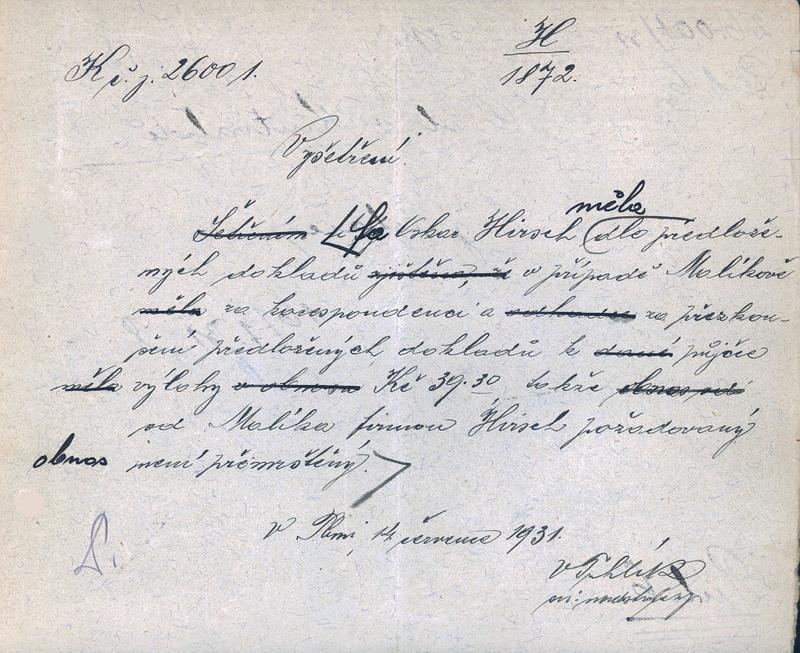 K č. j. 2600/1.
H
1872.
Vyšetření.
Šetřením měla
fa Oskar Hirsch dle předlože-
ných dokladů zjištěno, že v případě Malíkově
měla za korespondenci a za přezkou-
šení předložených dokladů k dané půjčce
měla výlohy v obnosu Kč 39.30 takže obnos od
od Malíka firmou Hirsch požadovaný
obnos není přemrštěný.
V Plzni, 14 července 1931.